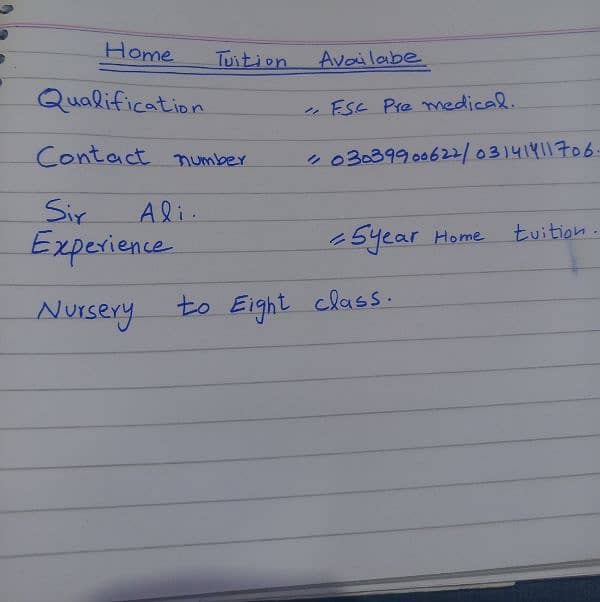 Home Tuition Availabe
Qualification = F.Sc Pre medical.
Contact number = 03039900622/03141411706.
Sir Ali.
Experience = 5year Home tuition.
Nursery to Eight class.